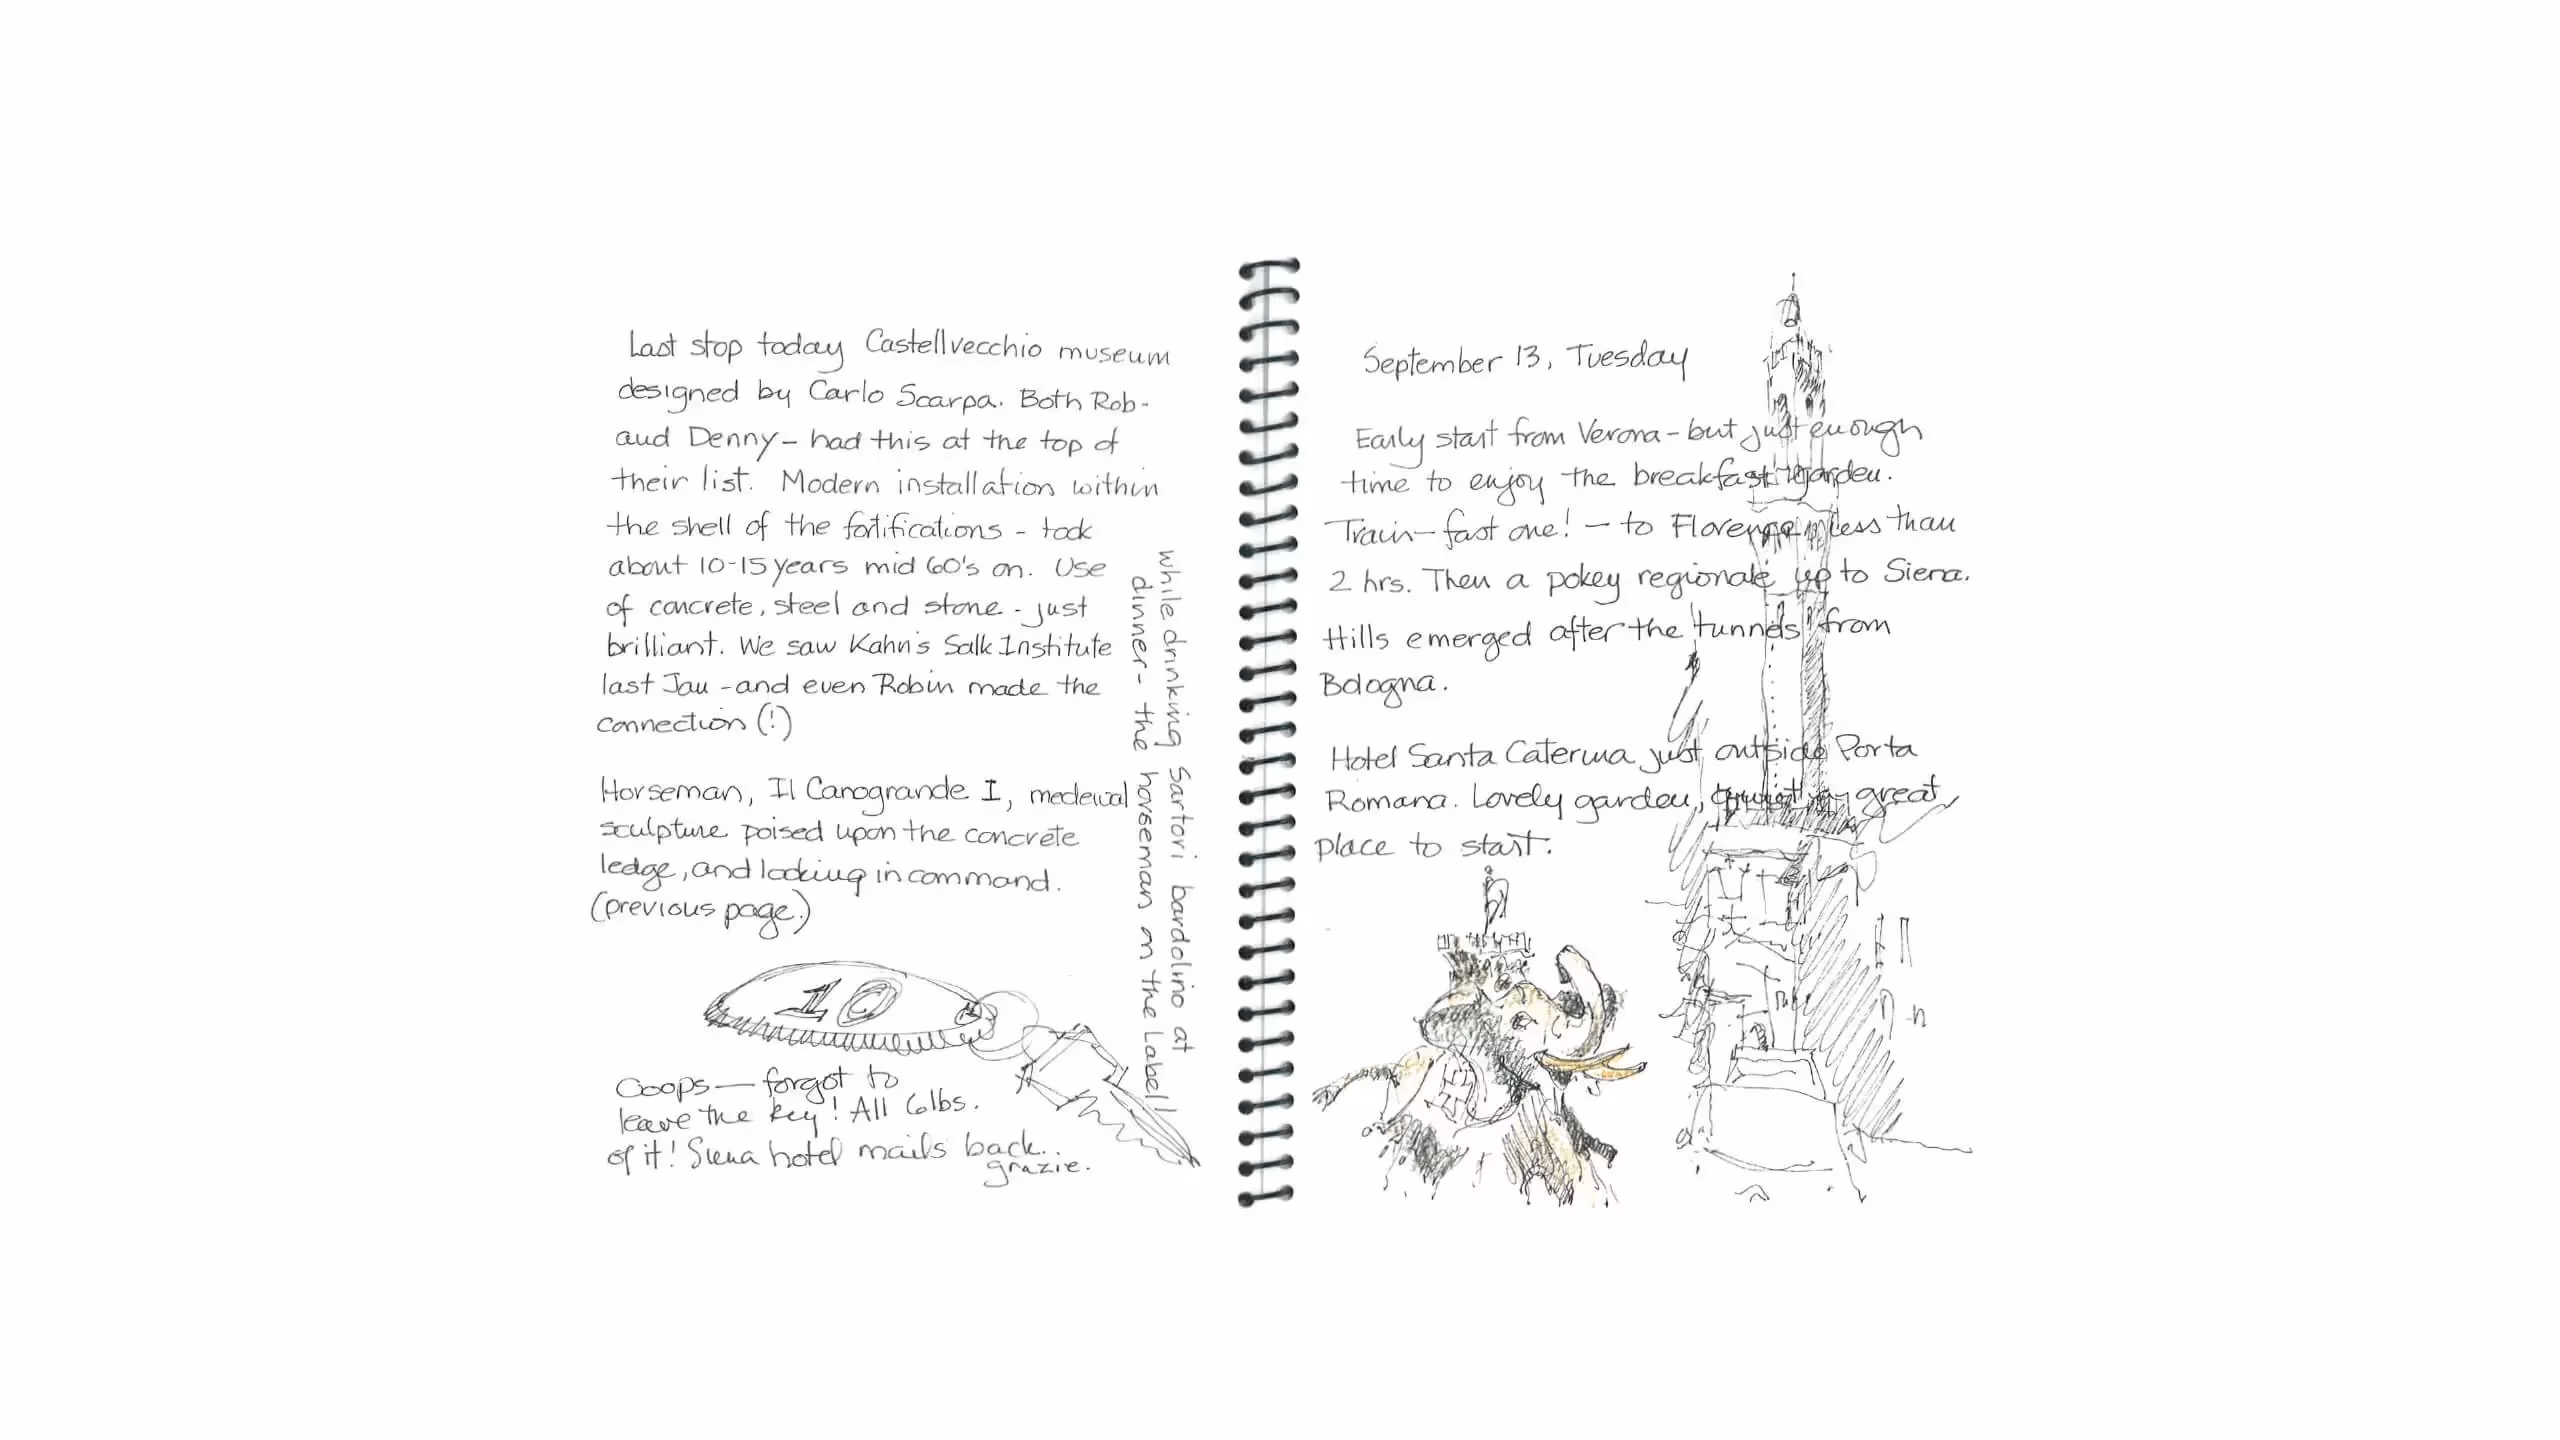 Last stop today Castellvecchio museum
designed by Carlo Scarpa. Both Rob-
and Denny - had this at the top of
their list. Modern installation within
the shell of the fortifications - took
about 10-15 years mid 60's on. Use
of concrete, steel and stone - just
brilliant. We saw Kahn's Salk Institute
last Jan - and even Robin made the
connection (!)
Horseman, Il Canogrande I, medeival
sculpture poised upon the concrete
ledge, and looking in command.
(previous page.)
while drinking Sartori bardolino at
dinner - the horseman on the Label!
10
Ooops — forgot to
leave the key! All 6 lbs.
of it! Siena hotel mails back..
grazie.
September 13, Tuesday
Early start from Verona - but just enough
time to enjoy the breakfast garden.
Train - fast one! - to Florence in less than
2 hrs. Then a pokey regionale up to Siena.
Hills emerged after the tunnels from
Bologna.
Hotel Santa Caterina just outside Porta
Romana. Lovely garden, great
place to start.